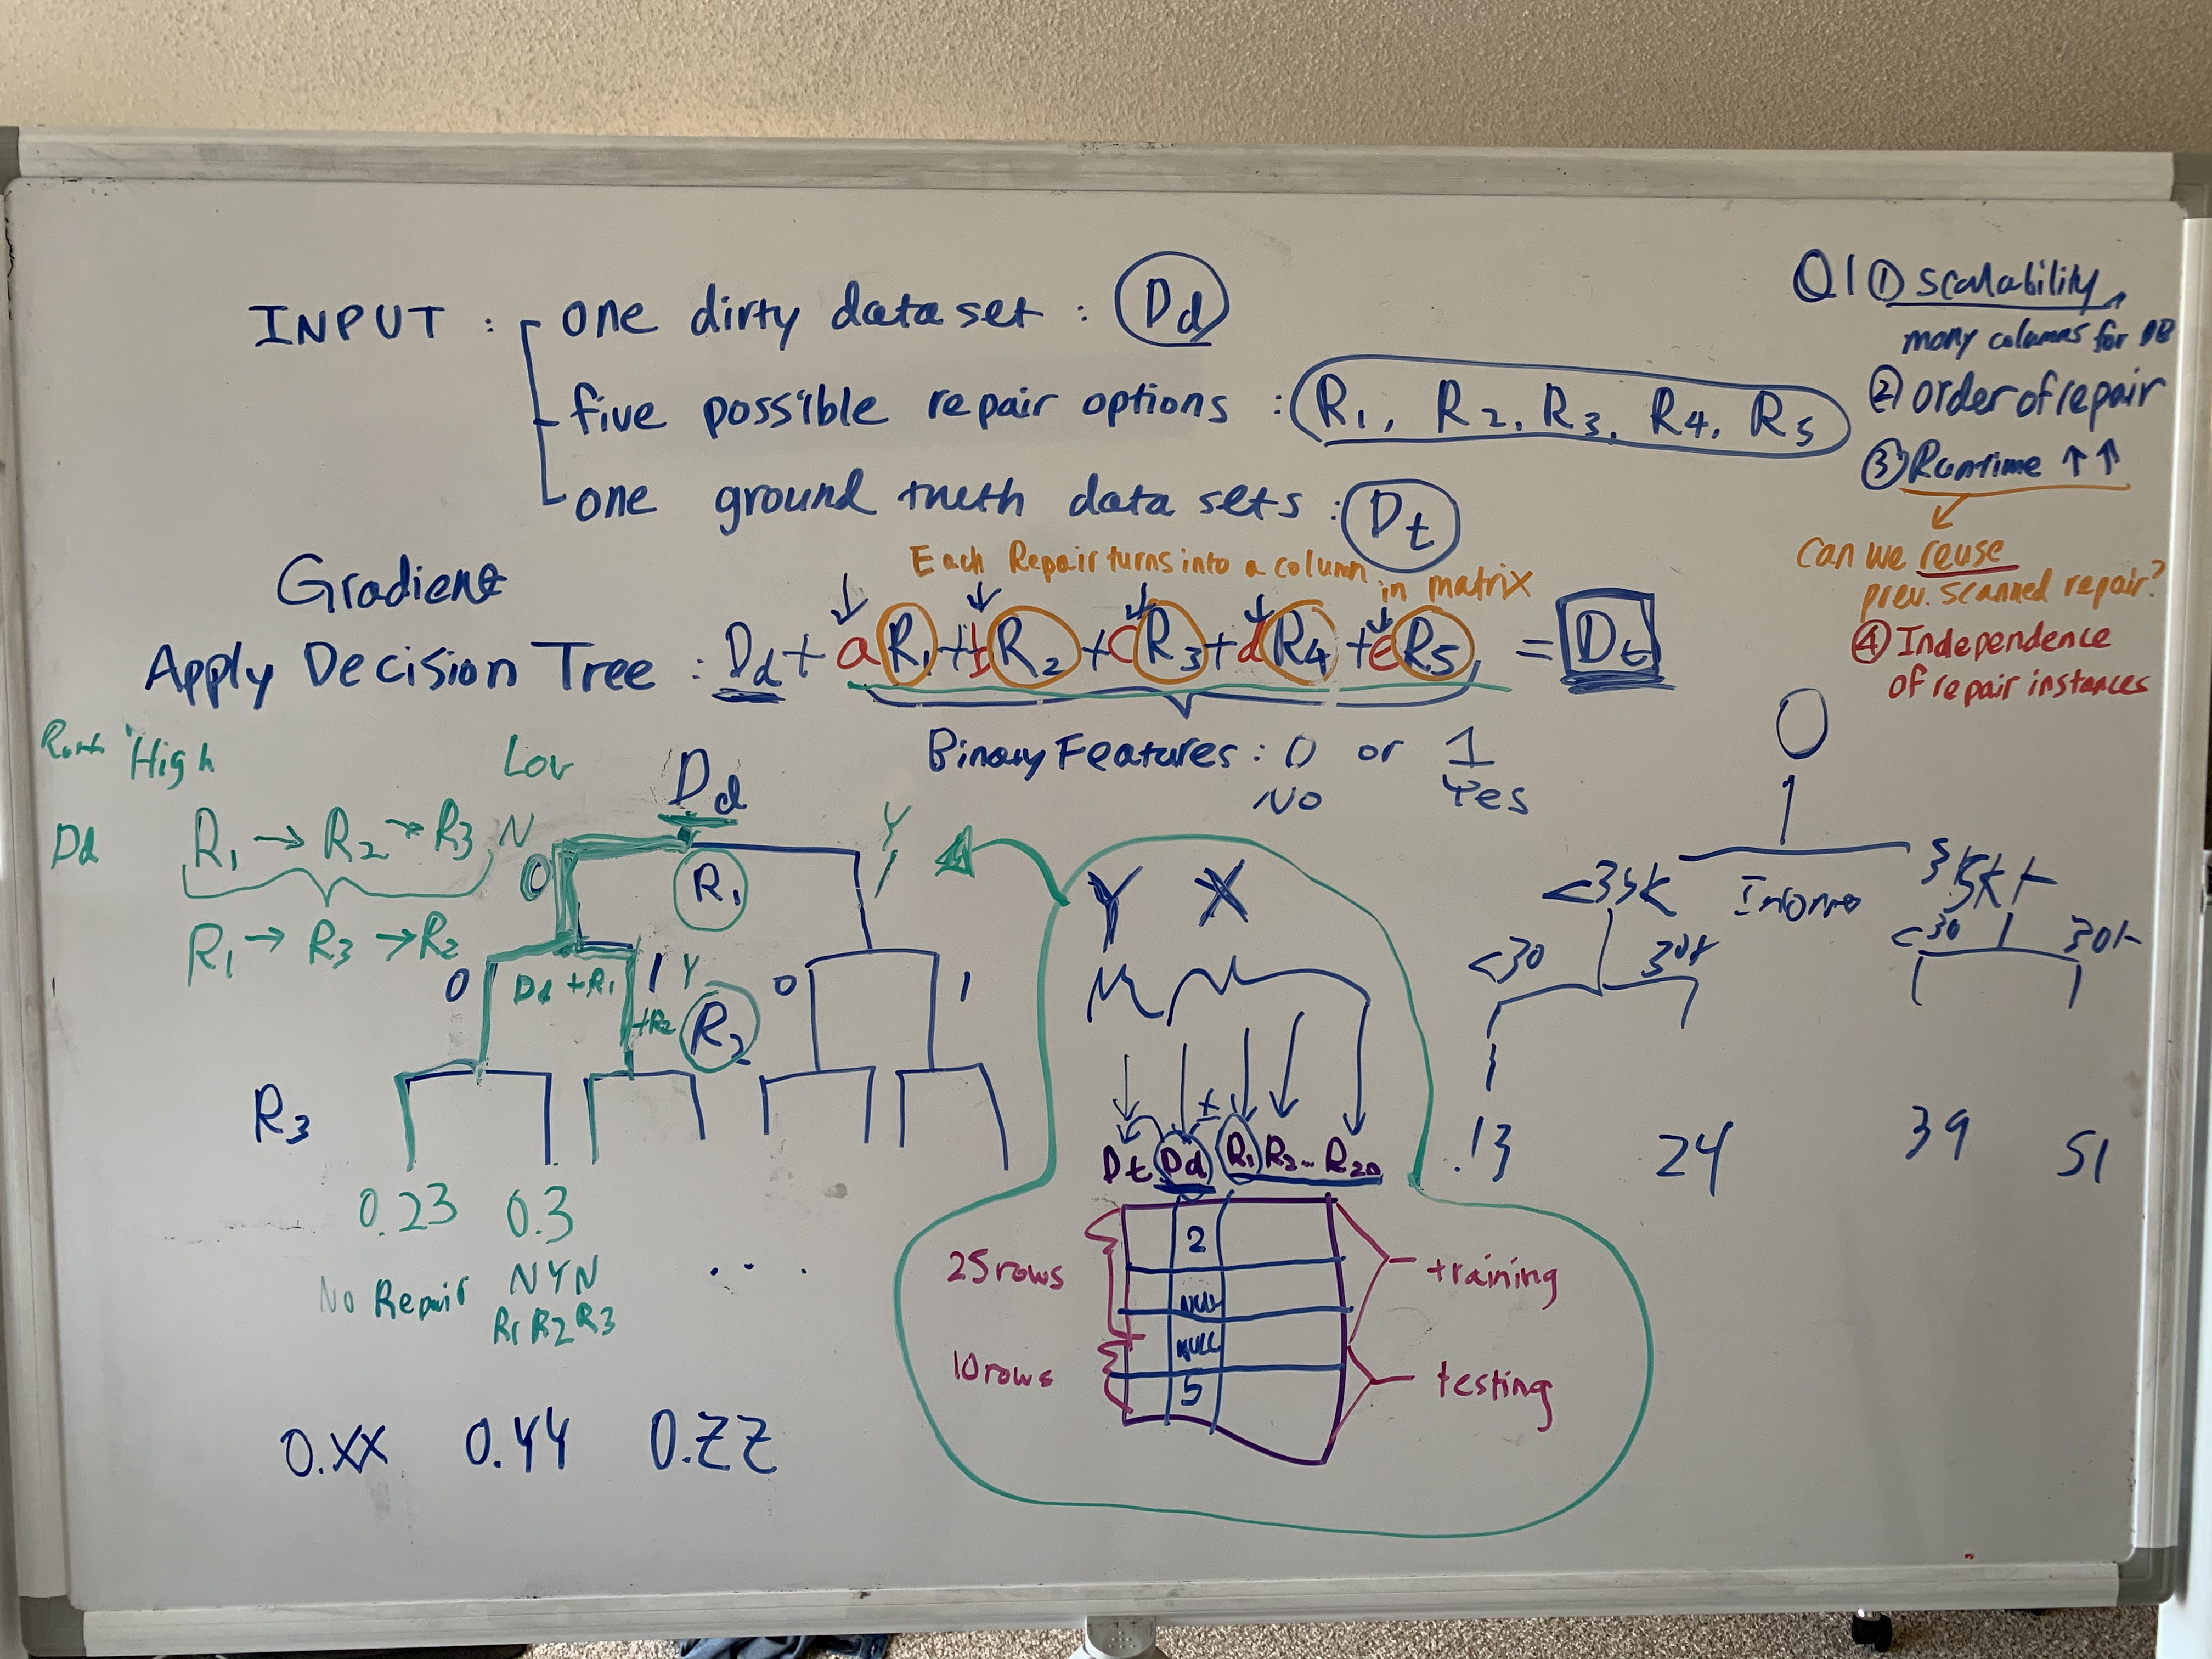 INPUT : one dirty data set : Dd
five possible repair options : R1, R2, R3, R4, R5
one ground truth data sets : Dt
Q1 ① scalability
many columns for DB
② order of repair
③ Runtime ↑↑
Can we reuse
prev. scanned repair?
④ Independence
of repair instances
Each Repair turns into a column in matrix
Gradient
Apply Decision Tree : Dd + aR1 + bR2 + cR3 + dR4 + eR5 = Dt
Binary Features : 0 or 1
No Yes
High Low
Dd R1 → R2 → R3
R1 → R3 → R2
Dd
N Y
0 R1 1
0 Dd + R1 1 Y 0 1
+R2 R2
R3
0.23 0.3
No Repair NYN ...
R1 R2 R3
0.XX 0.YY 0.ZZ
Y X
±
Dt Dd R1 R2 ... R20
2
NULL
NULL
5
25 rows training
10 rows testing
<35K Income 35K+
<30 30+ <30 30+
13 24 39 51